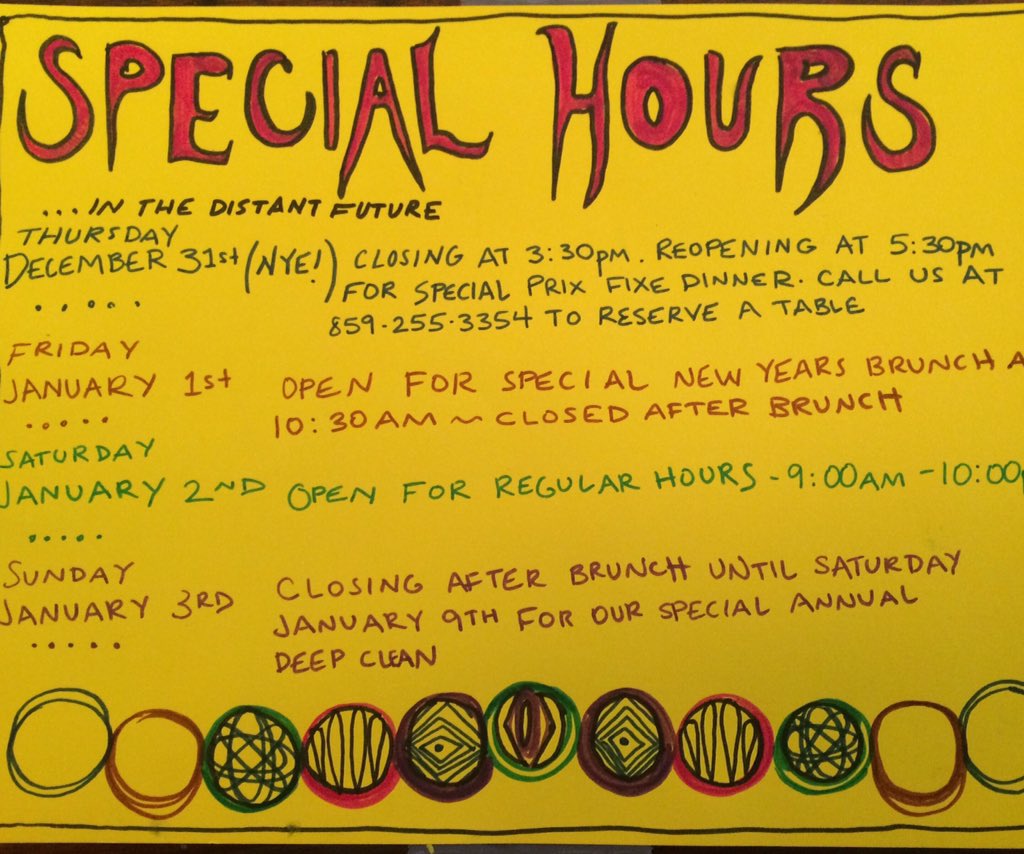 SPECIAL HOURS
...IN THE DISTANT FUTURE
THURSDAY
DECEMBER 31st (NYE!) CLOSING AT 3:30pm. REOPENING AT 5:30pm
FOR SPECIAL PRIX FIXE DINNER. CALL US AT
859.255.3354 TO RESERVE A TABLE
FRIDAY
JANUARY 1st OPEN FOR SPECIAL NEW YEARS BRUNCH
10:30AM ~ CLOSED AFTER BRUNCH
SATURDAY
JANUARY 2ND OPEN FOR REGULAR HOURS - 9:00AM - 10:00p
SUNDAY
JANUARY 3RD CLOSING AFTER BRUNCH UNTIL SATURDAY
JANUARY 9TH FOR OUR SPECIAL ANNUAL
DEEP CLEAN